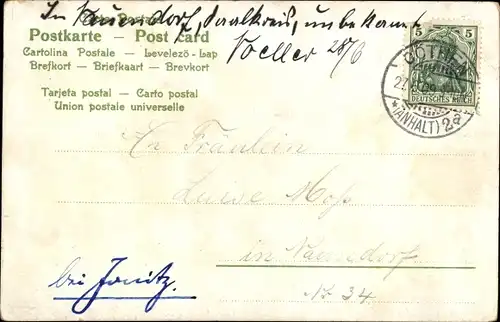 In Naundorf, Saalkreis, unbekannt
Voeller 28/6
Postkarte — Post card
Cartolina Postale — Levelező-Lap
Brefkort — Briefkaart — Brevkort
Tarjeta postal — Carto postal
Union postale universelle
5 5
DEUTSCHES REICH
CÖTHEN
(ANHALT) 2a
An Fräulein
Luise Moss
in Naundorf
bei Jonitz.
No 34